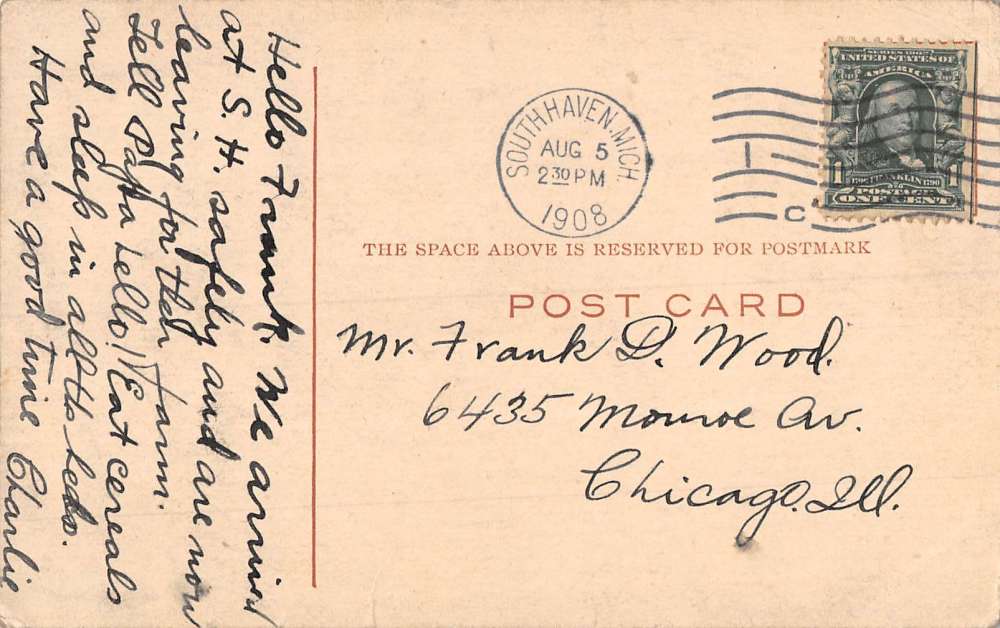 Hello Frank. We arrived
at S. H. safely and are now
leaving for the farm.
Tell Papa hello! Eat cereals
and sleep in all the beds.
Have a good time Charlie
SOUTH HAVEN, MICH.
AUG 5
2 30 PM
1908
C
SERIES 1902
UNITED STATES OF
AMERICA
1 1706 FRANKLIN 1790 1
POSTAGE
ONE CENT
THE SPACE ABOVE IS RESERVED FOR POSTMARK
POST CARD
Mr. Frank D. Wood.
6435 Monroe Av.
Chicago. Ill.